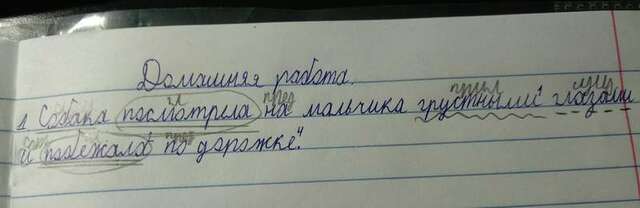 Домашняя работа.
1 Собака посмотрела на мальчика грустными глазами
и побежала по дорожке."